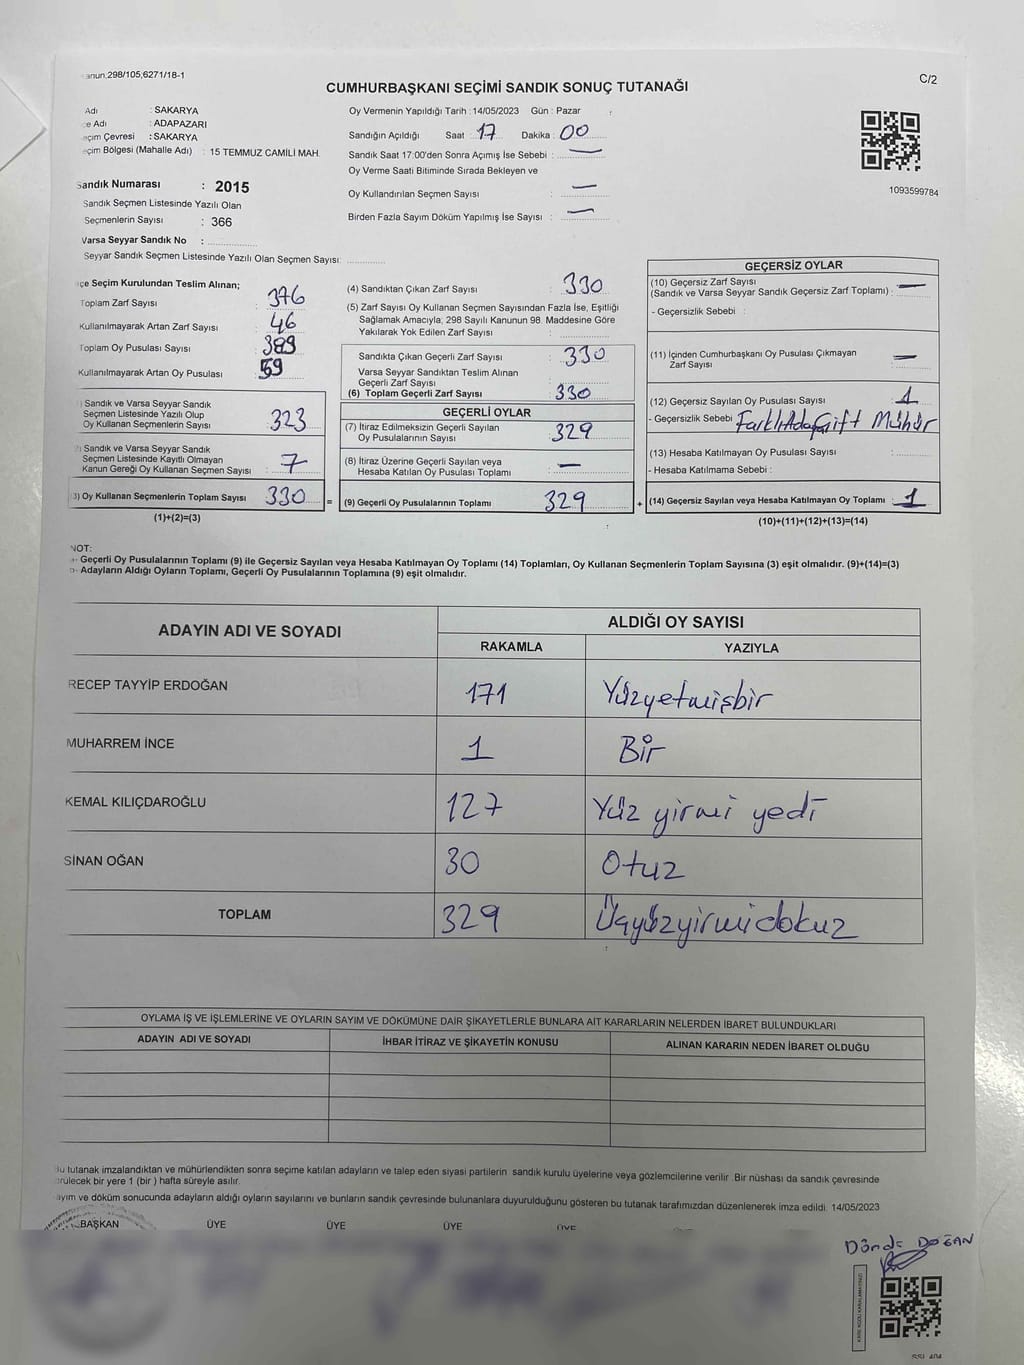 anun,298/105,6271/18-1
C/2
CUMHURBAŞKANI SEÇİMİ SANDIK SONUÇ TUTANAĞI
Adı : SAKARYA
çe Adı : ADAPAZARI
eçim Çevresi : SAKARYA
eçim Bölgesi (Mahalle Adı) : 15 TEMMUZ CAMİLİ MAH.
Sandık Numarası : 2015
Sandık Seçmen Listesinde Yazılı Olan
Seçmenlerin Sayısı : 366
Varsa Seyyar Sandık No :
Seyyar Sandık Seçmen Listesinde Yazılı Olan Seçmen Sayısı:
Oy Vermenin Yapıldığı Tarih : 14/05/2023 Gün : Pazar
Sandığın Açıldığı Saat 17 Dakika : 00
Sandık Saat 17:00'den Sonra Açımış İse Sebebi : —
Oy Verme Saati Bitiminde Sırada Bekleyen ve
Oy Kullandırılan Seçmen Sayısı : —
Birden Fazla Sayım Döküm Yapılmış İse Sayısı : —
1093599784
çe Seçim Kurulundan Teslim Alınan;
Toplam Zarf Sayısı : 376
Kullanılmayarak Artan Zarf Sayısı : 46
Toplam Oy Pusulası Sayısı : 389
Kullanılmayarak Artan Oy Pusulası : 59
) Sandık ve Varsa Seyyar Sandık
Seçmen Listesinde Yazılı Olup
Oy Kullanan Seçmenlerin Sayısı : 323
) Sandık ve Varsa Seyyar Sandık
Seçmen Listesinde Kayıtlı Olmayan
Kanun Gereği Oy Kullanan Seçmen Sayısı : 7
3) Oy Kullanan Seçmenlerin Toplam Sayısı 330
(1)+(2)=(3)
(4) Sandıktan Çıkan Zarf Sayısı : 330
(5) Zarf Sayısı Oy Kullanan Seçmen Sayısından Fazla İse, Eşitliği
Sağlamak Amacıyla, 298 Sayılı Kanunun 98. Maddesine Göre
Yakılarak Yok Edilen Zarf Sayısı :
Sandıkta Çıkan Geçerli Zarf Sayısı : 330
Varsa Seyyar Sandıktan Teslim Alınan
Geçerli Zarf Sayısı :
(6) Toplam Geçerli Zarf Sayısı : 330
GEÇERLİ OYLAR
(7) İtiraz Edilmeksizin Geçerli Sayılan
Oy Pusulalarının Sayısı : 329
(8) İtiraz Üzerine Geçerli Sayılan veya
Hesaba Katılan Oy Pusulası Toplamı : —
= (9) Geçerli Oy Pusulalarının Toplamı 329 +
GEÇERSİZ OYLAR
(10) Geçersiz Zarf Sayısı
(Sandık ve Varsa Seyyar Sandık Geçersiz Zarf Toplamı) : —
- Geçersizlik Sebebi :
(11) İçinden Cumhurbaşkanı Oy Pusulası Çıkmayan
Zarf Sayısı : —
(12) Geçersiz Sayılan Oy Pusulası Sayısı : 1
- Geçersizlik Sebebi : Farklı Adaya Çift Mühür
(13) Hesaba Katılmayan Oy Pusulası Sayısı :
- Hesaba Katılmama Sebebi :
(14) Geçersiz Sayılan veya Hesaba Katılmayan Oy Toplamı : 1
(10)+(11)+(12)+(13)=(14)
NOT:
- Geçerli Oy Pusulalarının Toplamı (9) ile Geçersiz Sayılan veya Hesaba Katılmayan Oy Toplamı (14) Toplamları, Oy Kullanan Seçmenlerin Toplam Sayısına (3) eşit olmalıdır. (9)+(14)=(3)
- Adayların Aldığı Oyların Toplamı, Geçerli Oy Pusulalarının Toplamına (9) eşit olmalıdır.
ADAYIN ADI VE SOYADI ALDIĞI OY SAYISI
RAKAMLA YAZIYLA
RECEP TAYYİP ERDOĞAN 171 Yüzyetmişbir
MUHARREM İNCE 1 Bir
KEMAL KILIÇDAROĞLU 127 Yüz yirmi yedi
SİNAN OĞAN 30 Otuz
TOPLAM 329 Üçyüzyirmidokuz
OYLAMA İŞ VE İŞLEMLERİNE VE OYLARIN SAYIM VE DÖKÜMÜNE DAİR ŞİKAYETLERLE BUNLARA AİT KARARLARIN NELERDEN İBARET BULUNDUKLARI
ADAYIN ADI VE SOYADI İHBAR İTİRAZ VE ŞİKAYETİN KONUSU ALINAN KARARIN NEDEN İBARET OLDUĞU
u tutanak imzalandıktan ve mühürlendikten sonra seçime katılan adayların ve talep eden siyasi partilerin sandık kurulu üyelerine veya gözlemcilerine verilir. Bir nüshası da sandık çevresinde
örülecek bir yere 1 (bir ) hafta süreyle asılır.
ayım ve döküm sonucunda adayların aldığı oyların sayılarını ve bunların sandık çevresinde bulunanlara duyurulduğunu gösteren bu tutanak tarafımızdan düzenlenerek imza edildi. 14/05/2023
BAŞKAN ÜYE ÜYE ÜYE ÜYE
Döndü DOĞAN